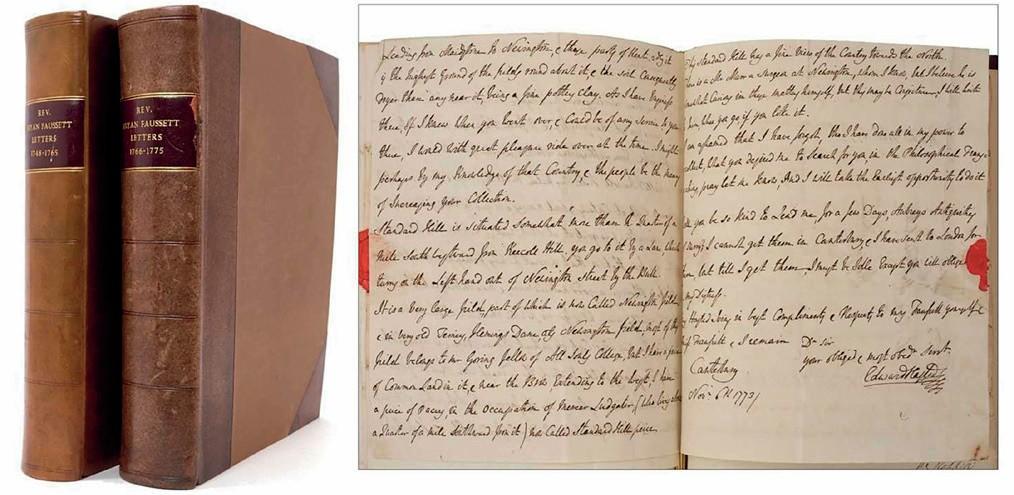 REV.
BRYAN FAUSSETT
LETTERS
1748-1765
REV.
BRYAN FAUSSETT
LETTERS
1766-1775
Leading from Maidstone to Newington, & those parts of Kent
is the highest Ground of the fields round about it, & the soil Consequently
Dryer than any near it, being a fine pottery Clay. As I have Business
there, If I knew when you went over, & Could be of any Service to you
there, I would with great pleasure ride over at the time. I might
perhaps by my Knowledge of that Country, & the people be the means
of Increasing your Collection.
Standard Hill is situated Somewhat more than a Quarter of a
mile South Eastward from Keycole Hill, you go to it by a Lane, which
turns on the Left hand out of Newington Street by the Bull
It is a very large field, part of which is now Called Newington field
& in very old Terriers, Flemings Dane, Newington field, most of the
field belongs to Mr Goring fellow of All Souls College, But I have a piece
of Common Land in it, & near the Extending to the West, I have
a piece of in the Occupation of Mercer Ludgater (who lives about
a Quarter of a mile Southward from it) now Called Standard Hill piece
Standard Hill has a fine View of the Country towards the North.
there is a Mr a Surgeon at Newington, whom I know, but I believe he is
not Curious in these matters himself, but this may be Conjecture, I will write
to him, when you go if you like it.
I'm ashamed that I have forgot, tho I have done all in my power to
recollect, What you desired me to Search for you in the Philosophical Trans-
actions, pray let me know, And I will take the Earliest opportunity to do it
Will you be so kind to Lend me, for a few Days, Aubreys Antiquities
of Surrey, I cannot get them in Canterbury, & I have sent to London for
them, but till I get them I must be Idle, Except you will oblige
my Distress.
Mrs Hasted Joins in best Compliments & Respects to Mrs Faussett yourself &
Faussett & I remain Dr Sir
your obliged & most obedt Servt.
Edward Hasted
Canterbury
Novr. 6th 1773/